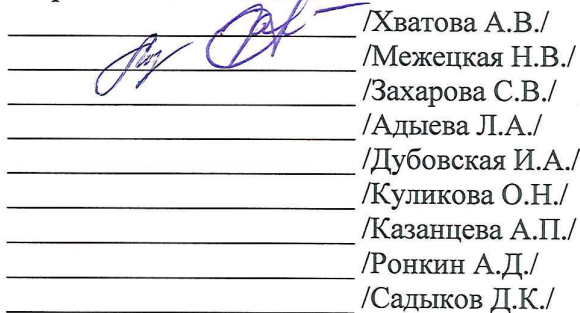 /Хватова А.В./
/Межецкая Н.В./
/Захарова С.В./
/Адыева Л.А./
/Дубовская И.А./
/Куликова О.Н./
/Казанцева А.П./
/Ронкин А.Д./
/Садыков Д.К./